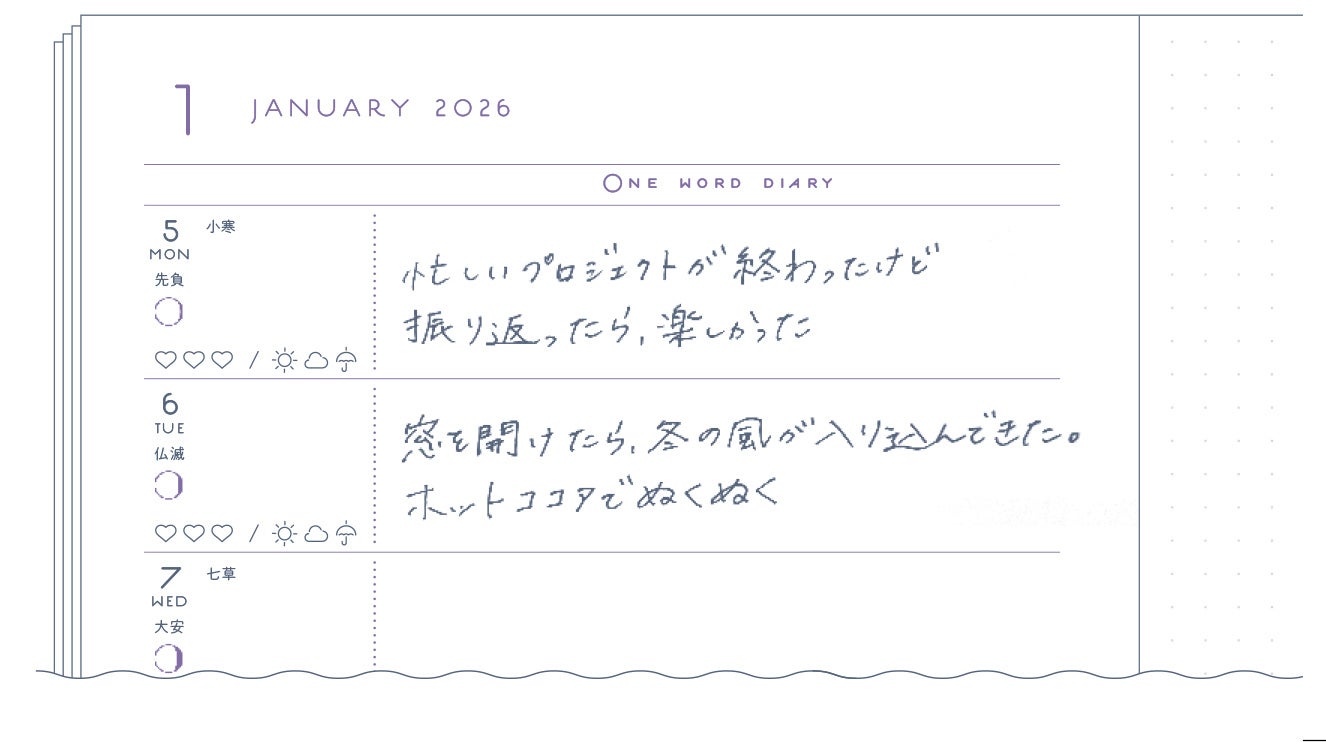 1 JANUARY 2026
ONE WORD DIARY
5 小寒
MON
先負
忙しいプロジェクトが終わったけど
振り返ったら、楽しかった
/
6
TUE
仏滅
窓を開けたら、冬の風が入り込んできた。
ホットココアでぬくぬく
/
7 七草
WED
大安